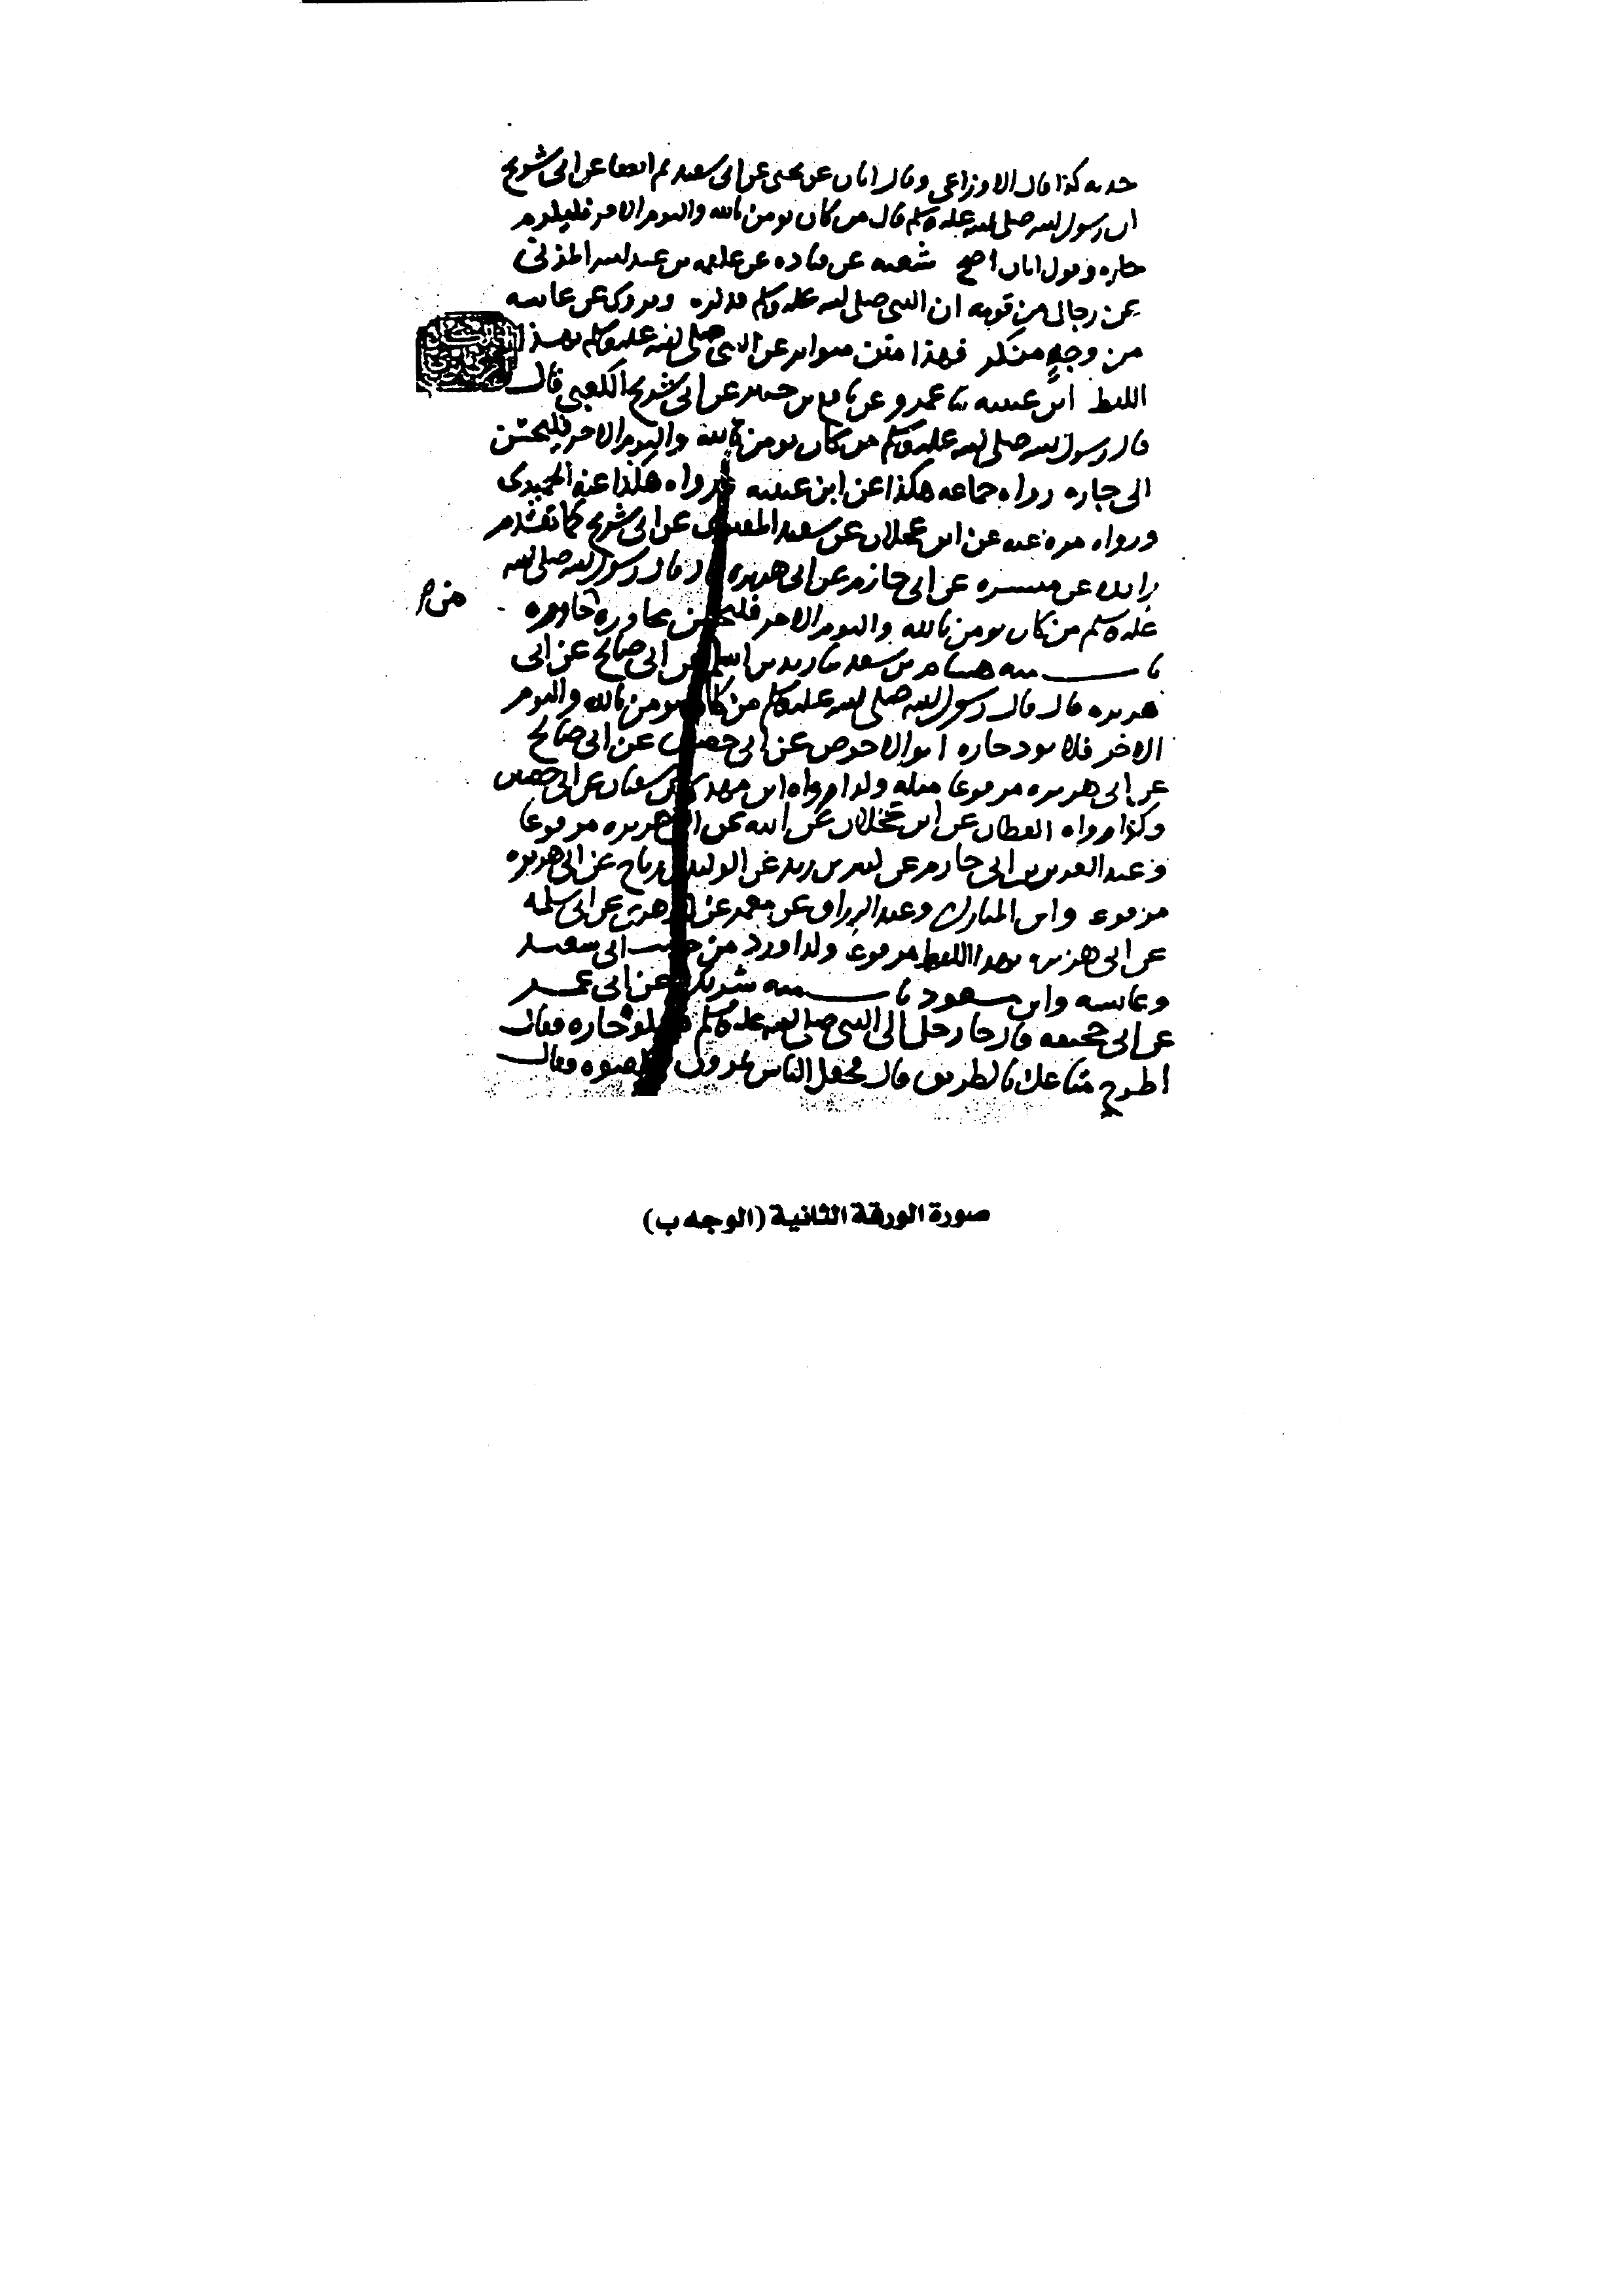 حديه كذا قال الاوزاعي وقال ابان عن يحيى عن ابي سعيد عن ابي شريح
ان رسول الله صلى الله عليه وسلم قال من كان يومن بالله واليوم الاخر فليكرم
جاره وقول ابان اصح شعبه عن قتاده عن علقمه بن عبد الله المزني
عن رجال من قومه ان النبي صلى الله عليه وسلم فذكره ويروى عن عايشه
من وجه منكر فهذا متن متواتر عن النبي صلى الله عليه وسلم بهذا
اللفظ ابن عيينه نا عمرو عن نافع بن جبير عن ابي شريح الكعبي قال
قال رسول الله صلى الله عليه وسلم من كان يومن بالله واليوم الاخر فليحسن
الى جاره رواه جماعه هكذا عن ابن عيينه ورواه هكذا عنه الحميدي
ورواه مره عنه عن ابن عجلان عن سعيد المقبري عن ابي شريح كما تقدم
زايده عن ميسره عن ابي حازم عن ابي هريره قال قال رسول الله صلى الله
عليه وسلم من كان يومن بالله واليوم الاخر فليحسن مجاوره من جاوره
هشام بن سعد نا زيد بن اسلم عن ابي صالح عن ابي
هريره قال قال رسول الله صلى الله عليه وسلم من كان يومن بالله واليوم
الاخر فلا يوذ جاره ابو الاحوص عن ابي حصين عن ابي صالح
عن ابي هريره مرفوعا مثله وكذا رواه ابن مهدي عن سفيان عن ابي حصين
وكذا رواه القطان عن ابن عجلان عن ابيه عن ابي هريره مرفوعا
وعبد العزيز بن ابي حازم عن كثير بن زيد عن الوليد بن رباح عن ابي هريره
مرفوعا وابن المبارك وعبد الرزاق عن معمر عن الزهري عن ابي سلمه
عن ابي هريره بهذا اللفظ مرفوعا وكذا ورد من حديث ابي سعيد
وعايشه وابن مسعود شريك عن ابي عمر
عن ابي جحيفه قال جا رجل الى النبي صلى الله عليه وسلم يشكو جاره فقال
اطرح متاعك بالطريق قال فجعل الناس يمرون فقال
صورة الورقة الثانية (الوجه ب)